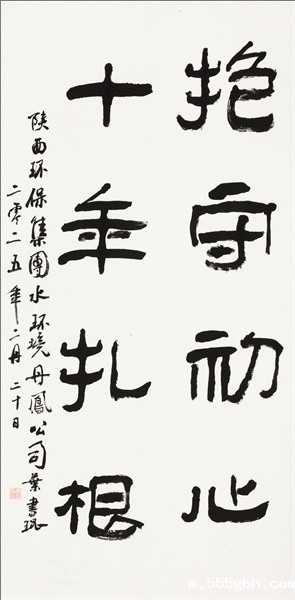 抱守初心
十年扎根
陕西环保集團水环境丹鳳公司葉書
二零二五年二月二十日
m.555gbh.com